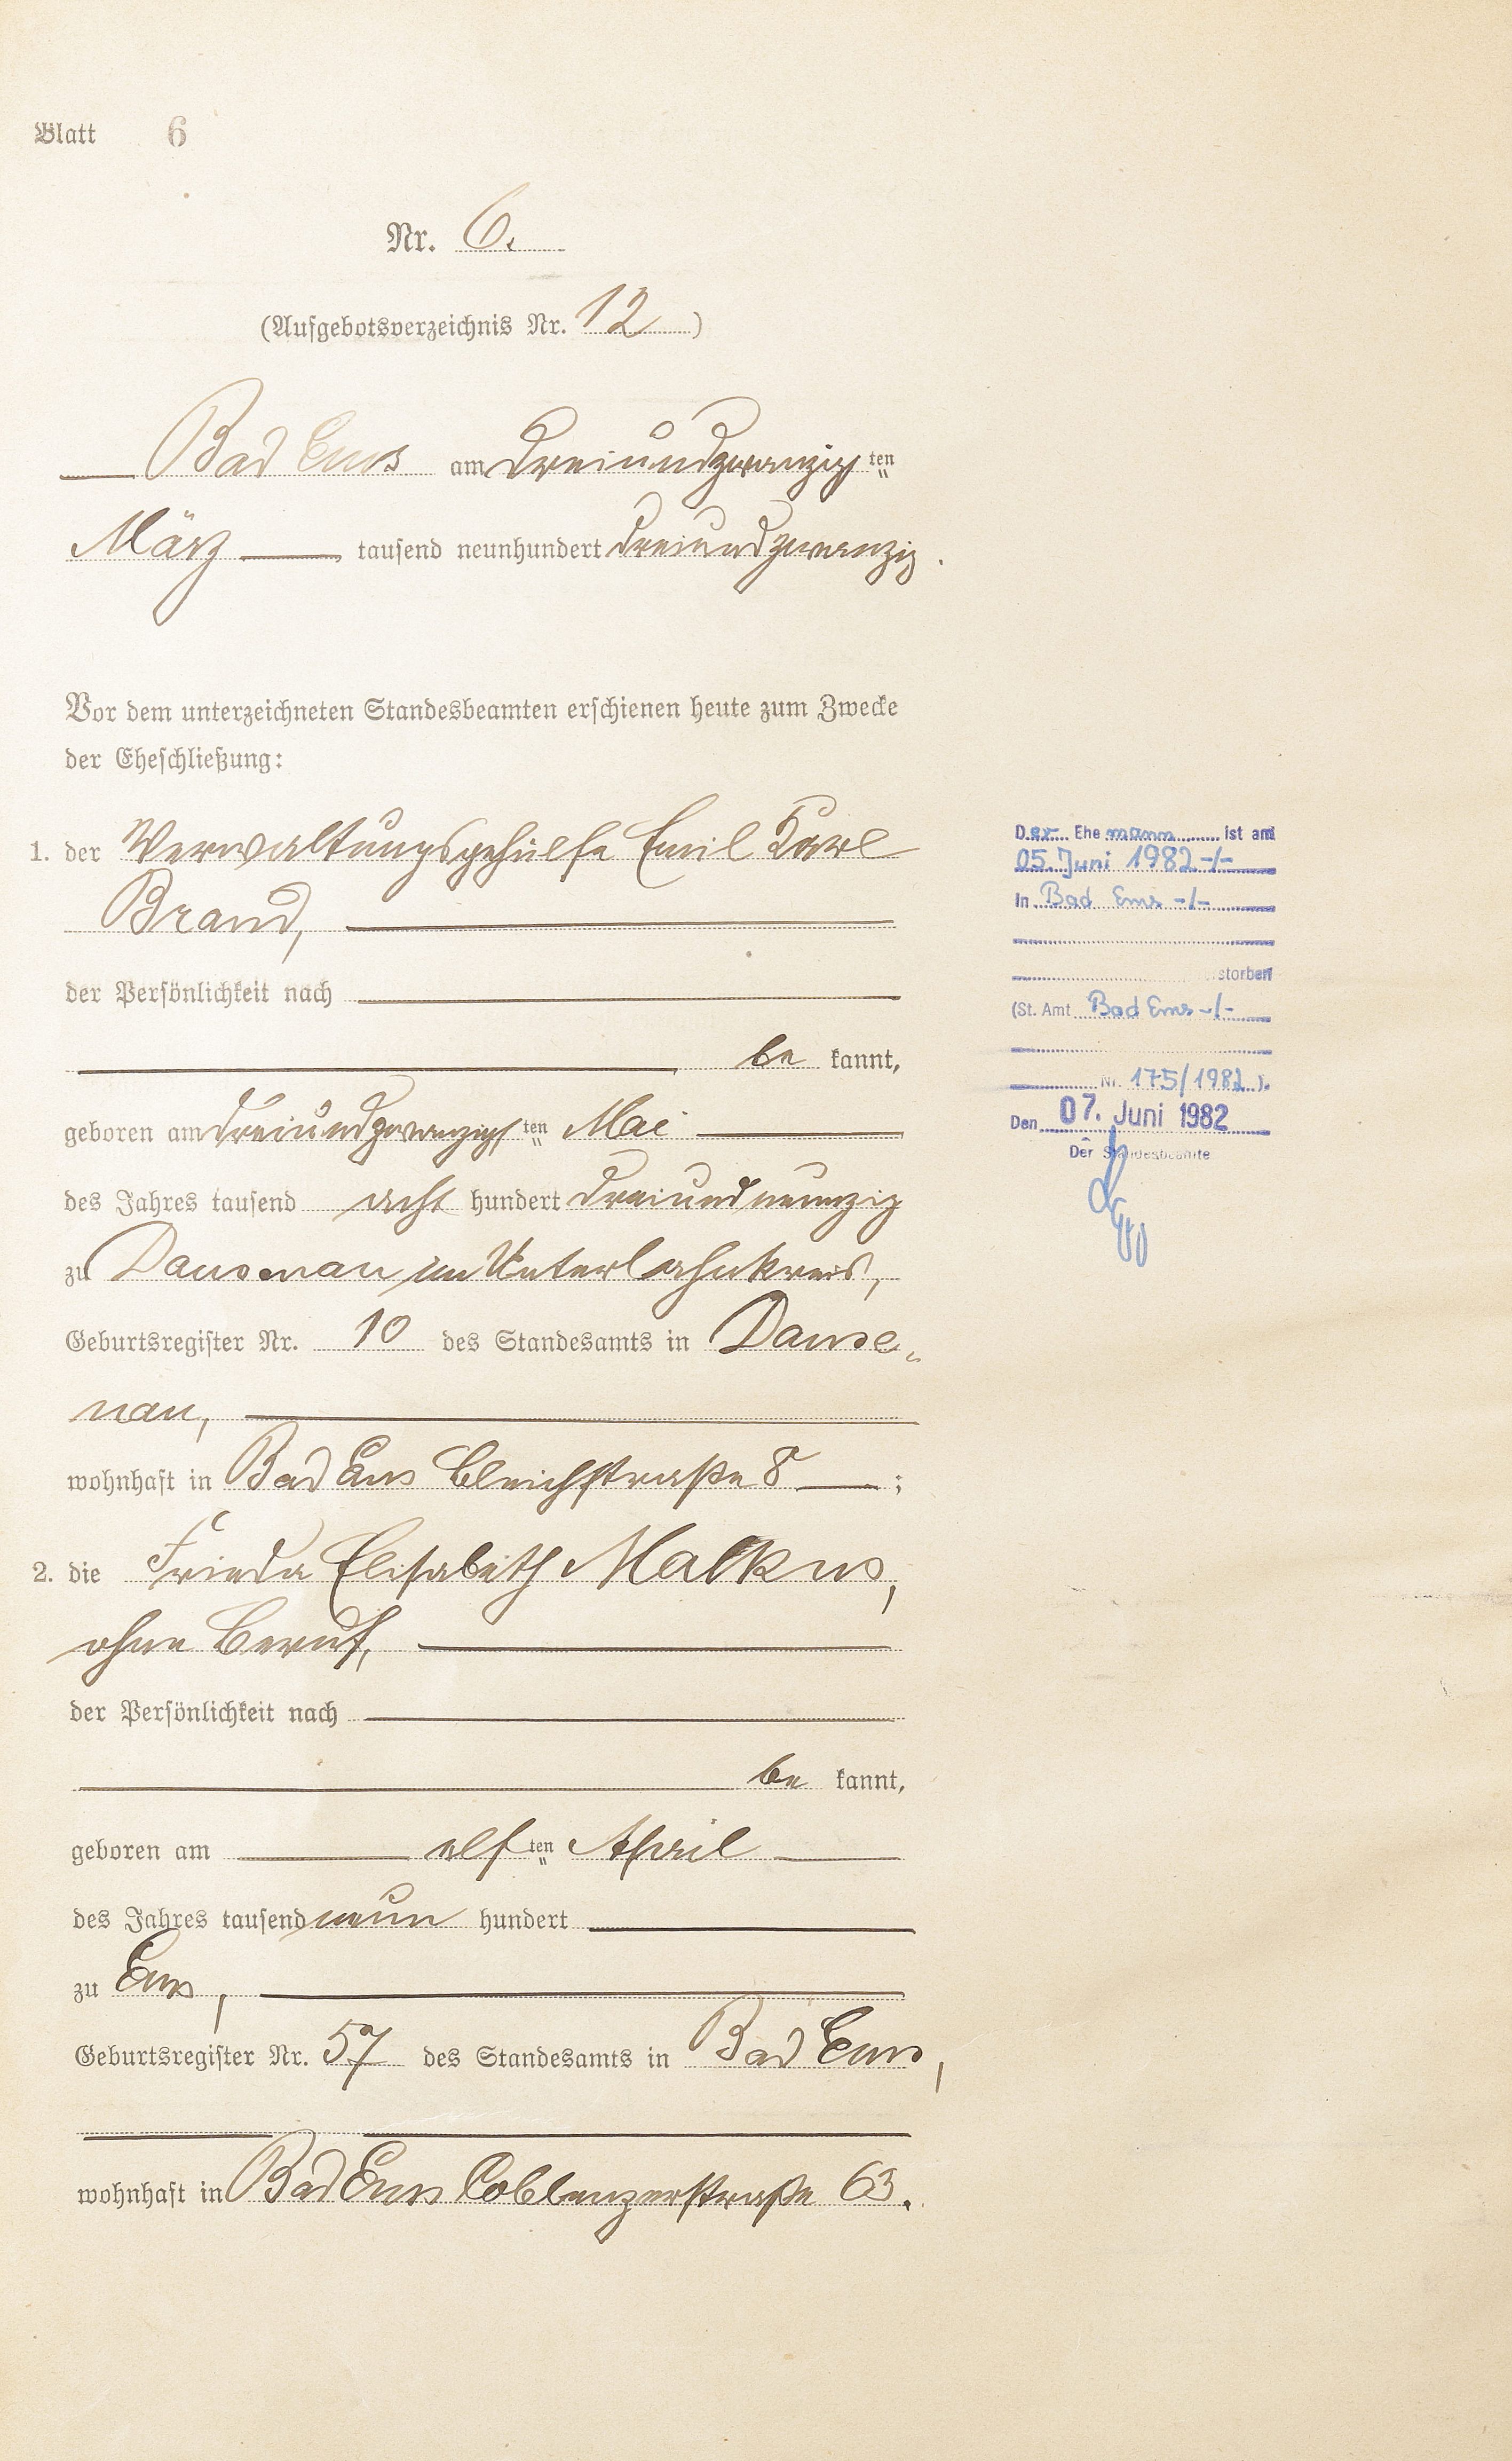 Blatt 6
Nr. 6.
(Aufgebotsverzeichnis Nr. 12)
Bad Ems am dreiundzwanzigten
März tausend neunhundert dreiundzwanzig.
Vor dem unterzeichneten Standesbeamten erschienen heute zum Zwecke
der Eheschließung:
1. der Verwaltungsgehülfe Emil Karl
Brand,
der Persönlichkeit nach
be kannt,
geboren am dreiundzwanzigten Mai
des Jahres tausend acht hundert dreiundneunzig
zu Dausenau im Unterlahnkreis,
Geburtsregister Nr. 10 des Standesamts in Dause-
nau,
wohnhaft in Bad Ems Bleichstraße 8;
2. die Frieda Elisabeth Malkus,
ohne Beruf,
der Persönlichkeit nach
be kannt,
geboren am elften April
des Jahres tausend neun hundert
zu Ems,
Geburtsregister Nr. 57 des Standesamts in Bad Ems,
wohnhaft in Bad Ems Coblenzerstraße 63.
Der Ehemann ist am
05. Juni 1982 -/-
In Bad Ems -/-
storben
(St. Amt Bad Ems -/-
Nr. 175/1982).
Den 07. Juni 1982
Der Standesbeamte